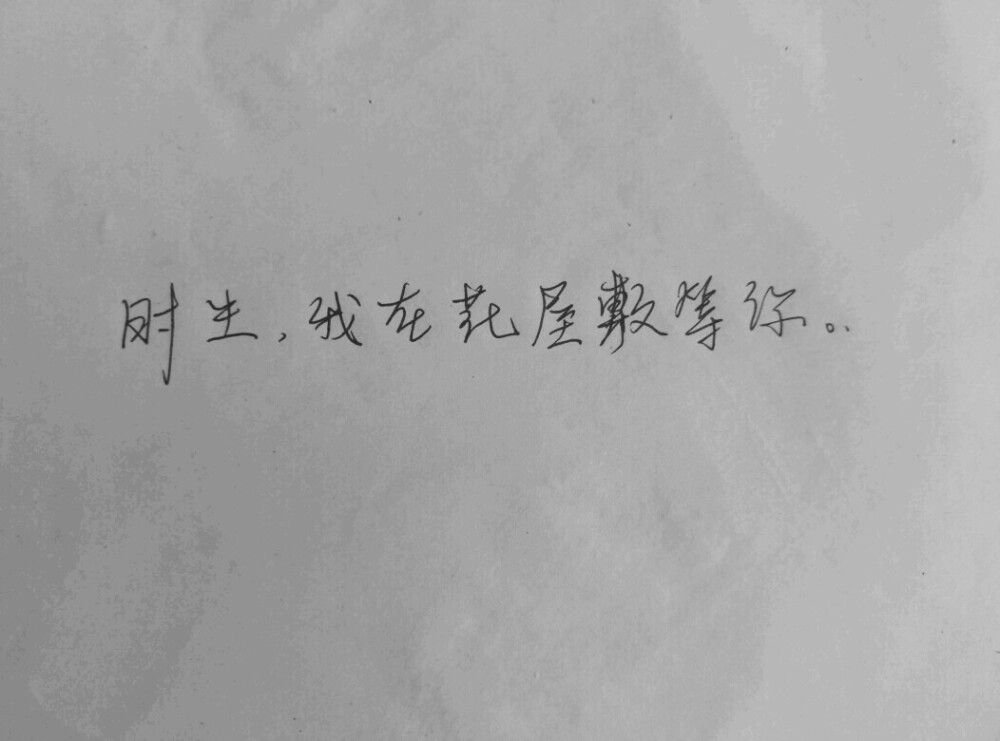 时生,我在花屋敷等你。